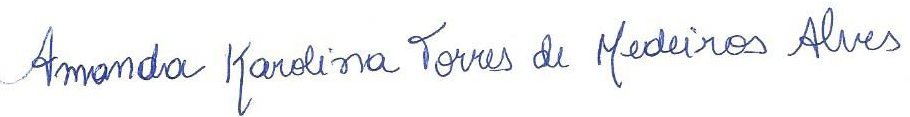 Amanda Karolina Torres de Medeiros Alves